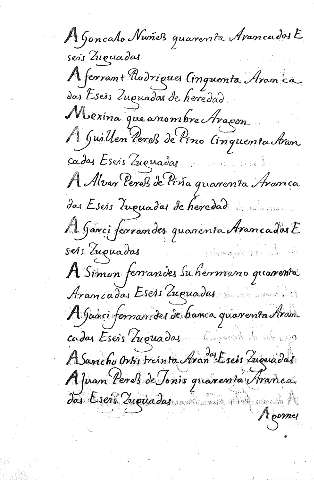 A Goncalo Nuñes quarenta Arancadas E
seis Zuguadas
A ferrant Rodrigues Cinquenta Aranca
das E seis Zuguadas de heredad
Mexina que a nombre Aragon
A Guillen Peres de Pino Cinquenta Aran
cadas E seis Zuguadas
A Alvar Peres de Piña quarenta Aranca
das E seis Zuguadas de heredad
A Garci ferrandes quarenta Arancadas E
seis Zuguadas
A Simon fernandes su hermano quarenta
Arancadas E seis Zuguadas
A Garci fernandes de banca quarenta Aran
cadas E seis Zuguadas
A Sancho Ortis treinta Arandas E seis Zuguadas
A Juan Peres de Tonis quarenta Aranca
das E seis Zuguadas
A gomes